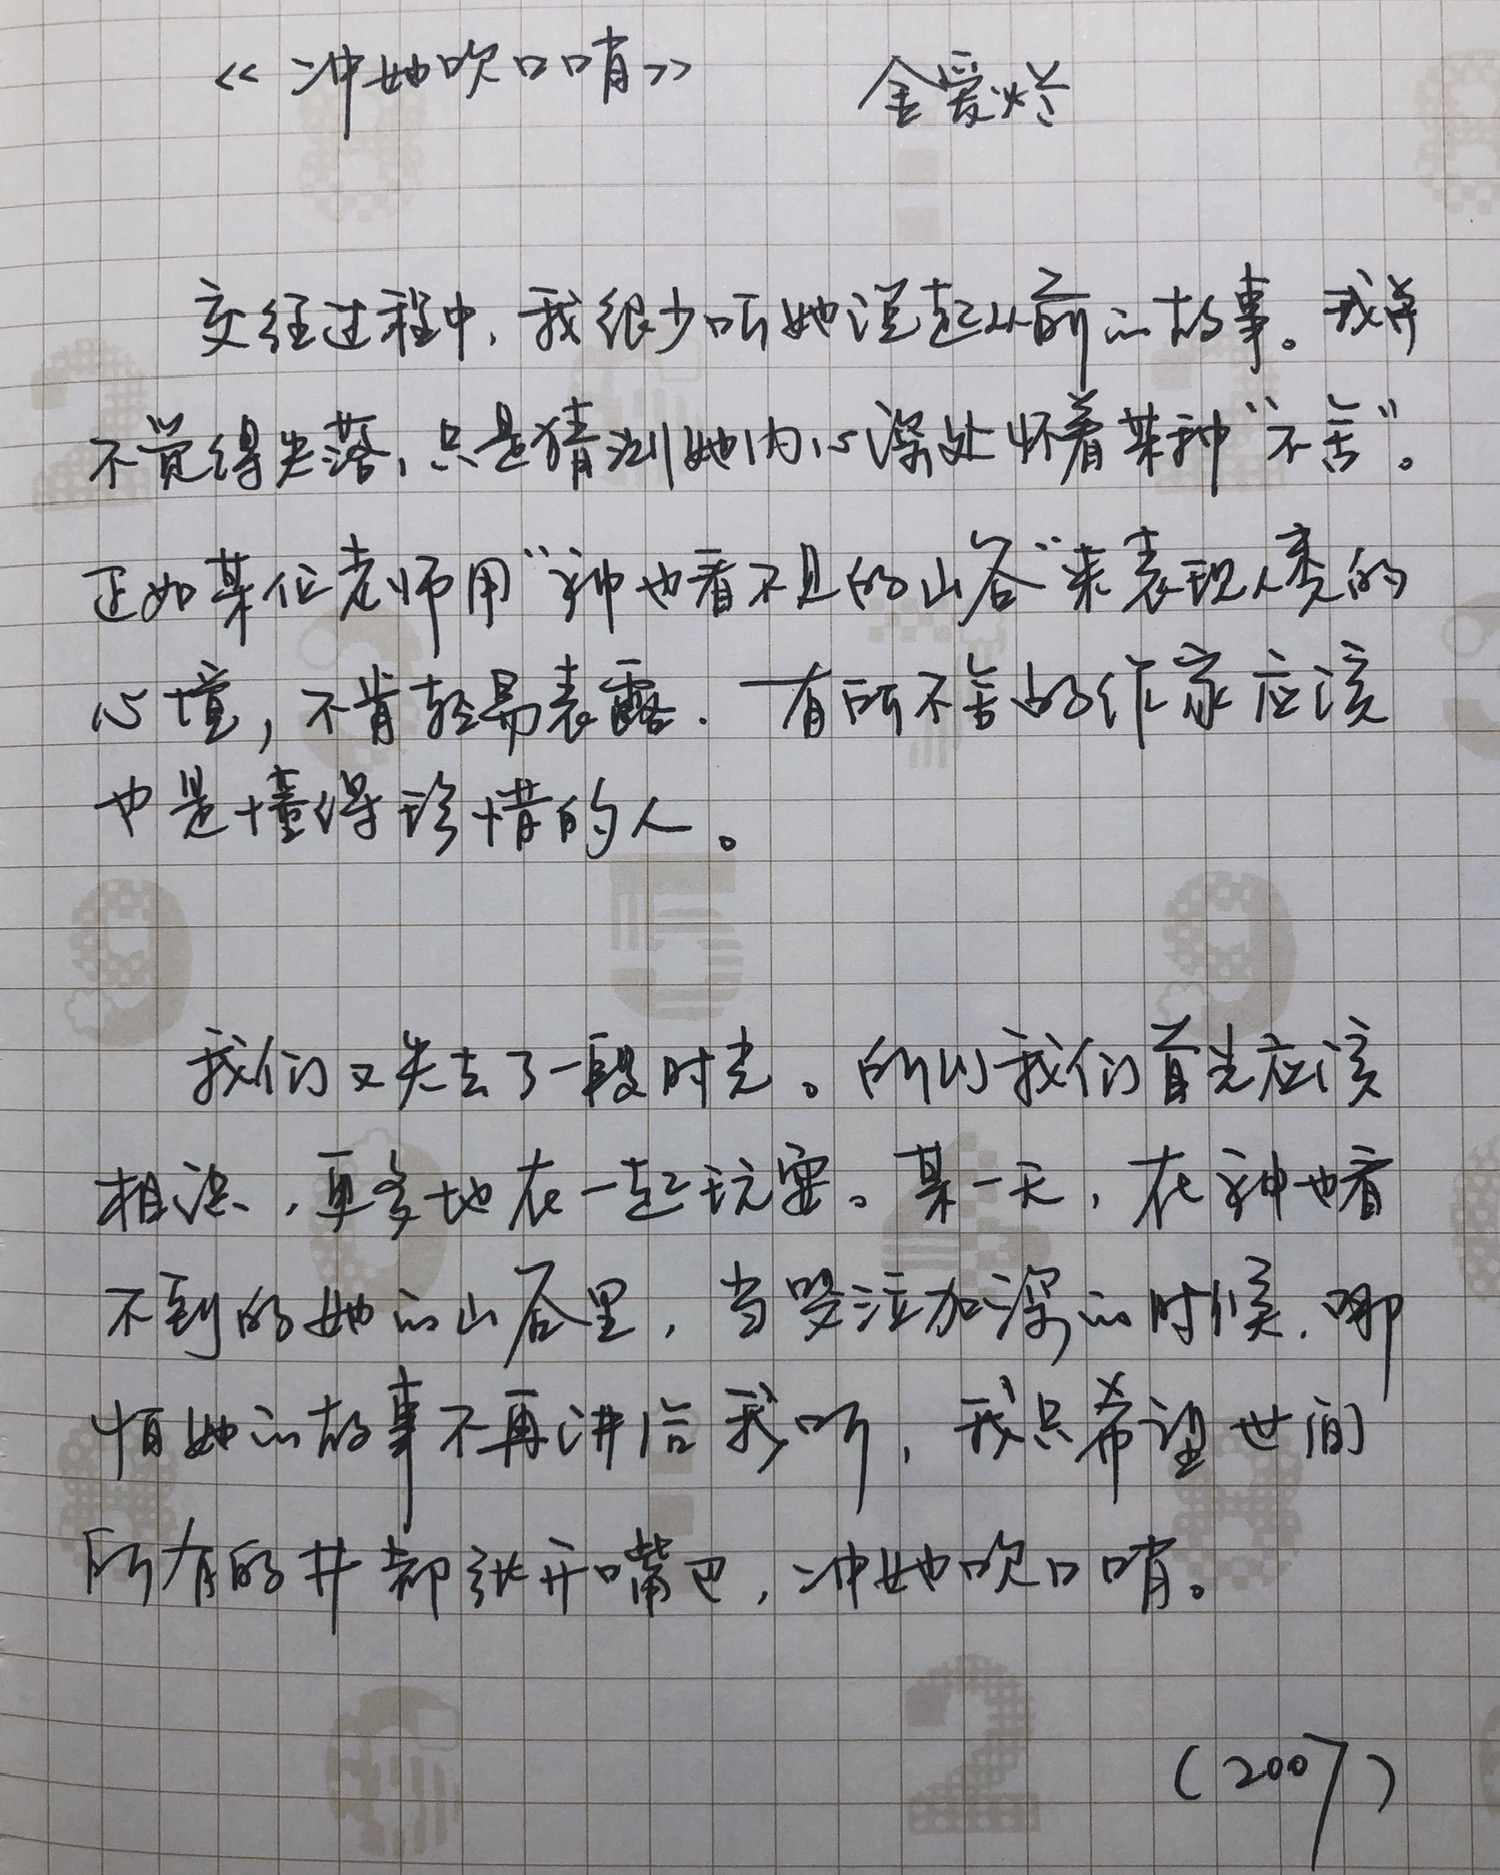 《冲她吹口哨》 金爱烂
交往过程中，我很少听她说起以前的故事。我并
不觉得失落，只是猜测她内心深处怀着某种“不舍”。
正如某位老师用“神也看不见的山谷”来表现人类的
心境，不肯轻易表露．有所不舍的作家应该
也是懂得珍惜的人。
我们又失去了一段时光。所以我们首先应该
相识，更多地在一起玩耍。某一天，在神也看
不到的她的山谷里，当哭泣加深的时候，哪
怕她的故事不再讲给我听，我只希望世间
所有的井都张开嘴巴，冲她吹口哨。
（2007）